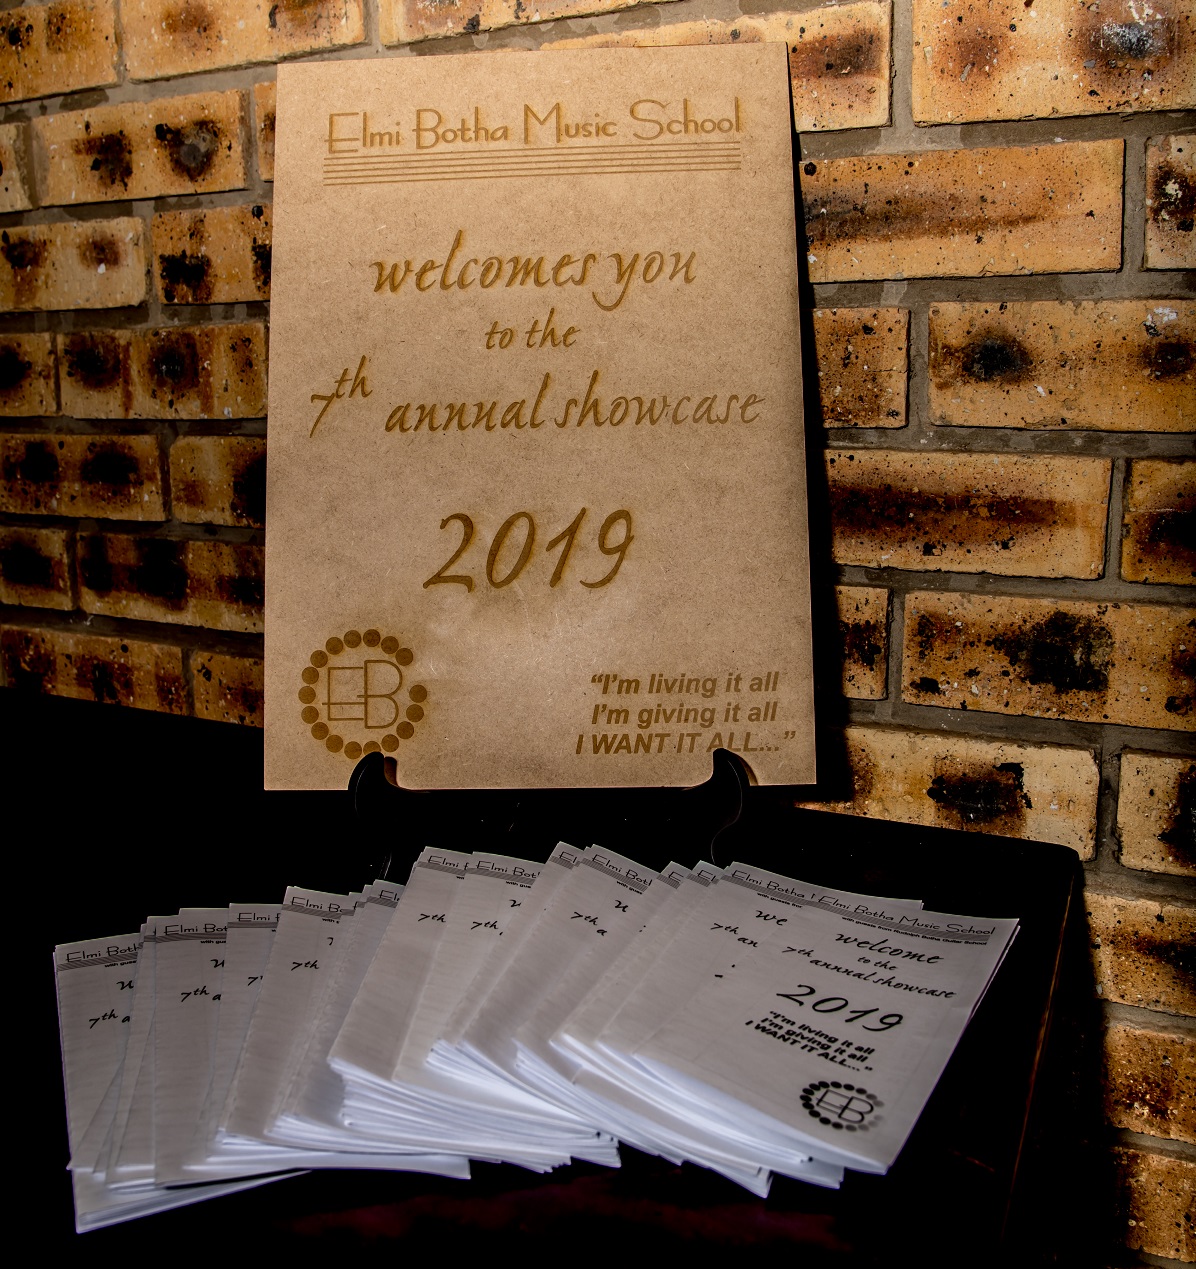 Elmi Botha Music School
welcomes you
to the
7th annual showcase
2019
EB
“I'm living it all
I'm giving it all
I WANT IT ALL...”
Elmi Botha Music School
with guests from Rudolph Botha Guitar School
welcome
to the
7th annual showcase
2019
“I'm living it all
I'm giving it all
I WANT IT ALL...”
EB